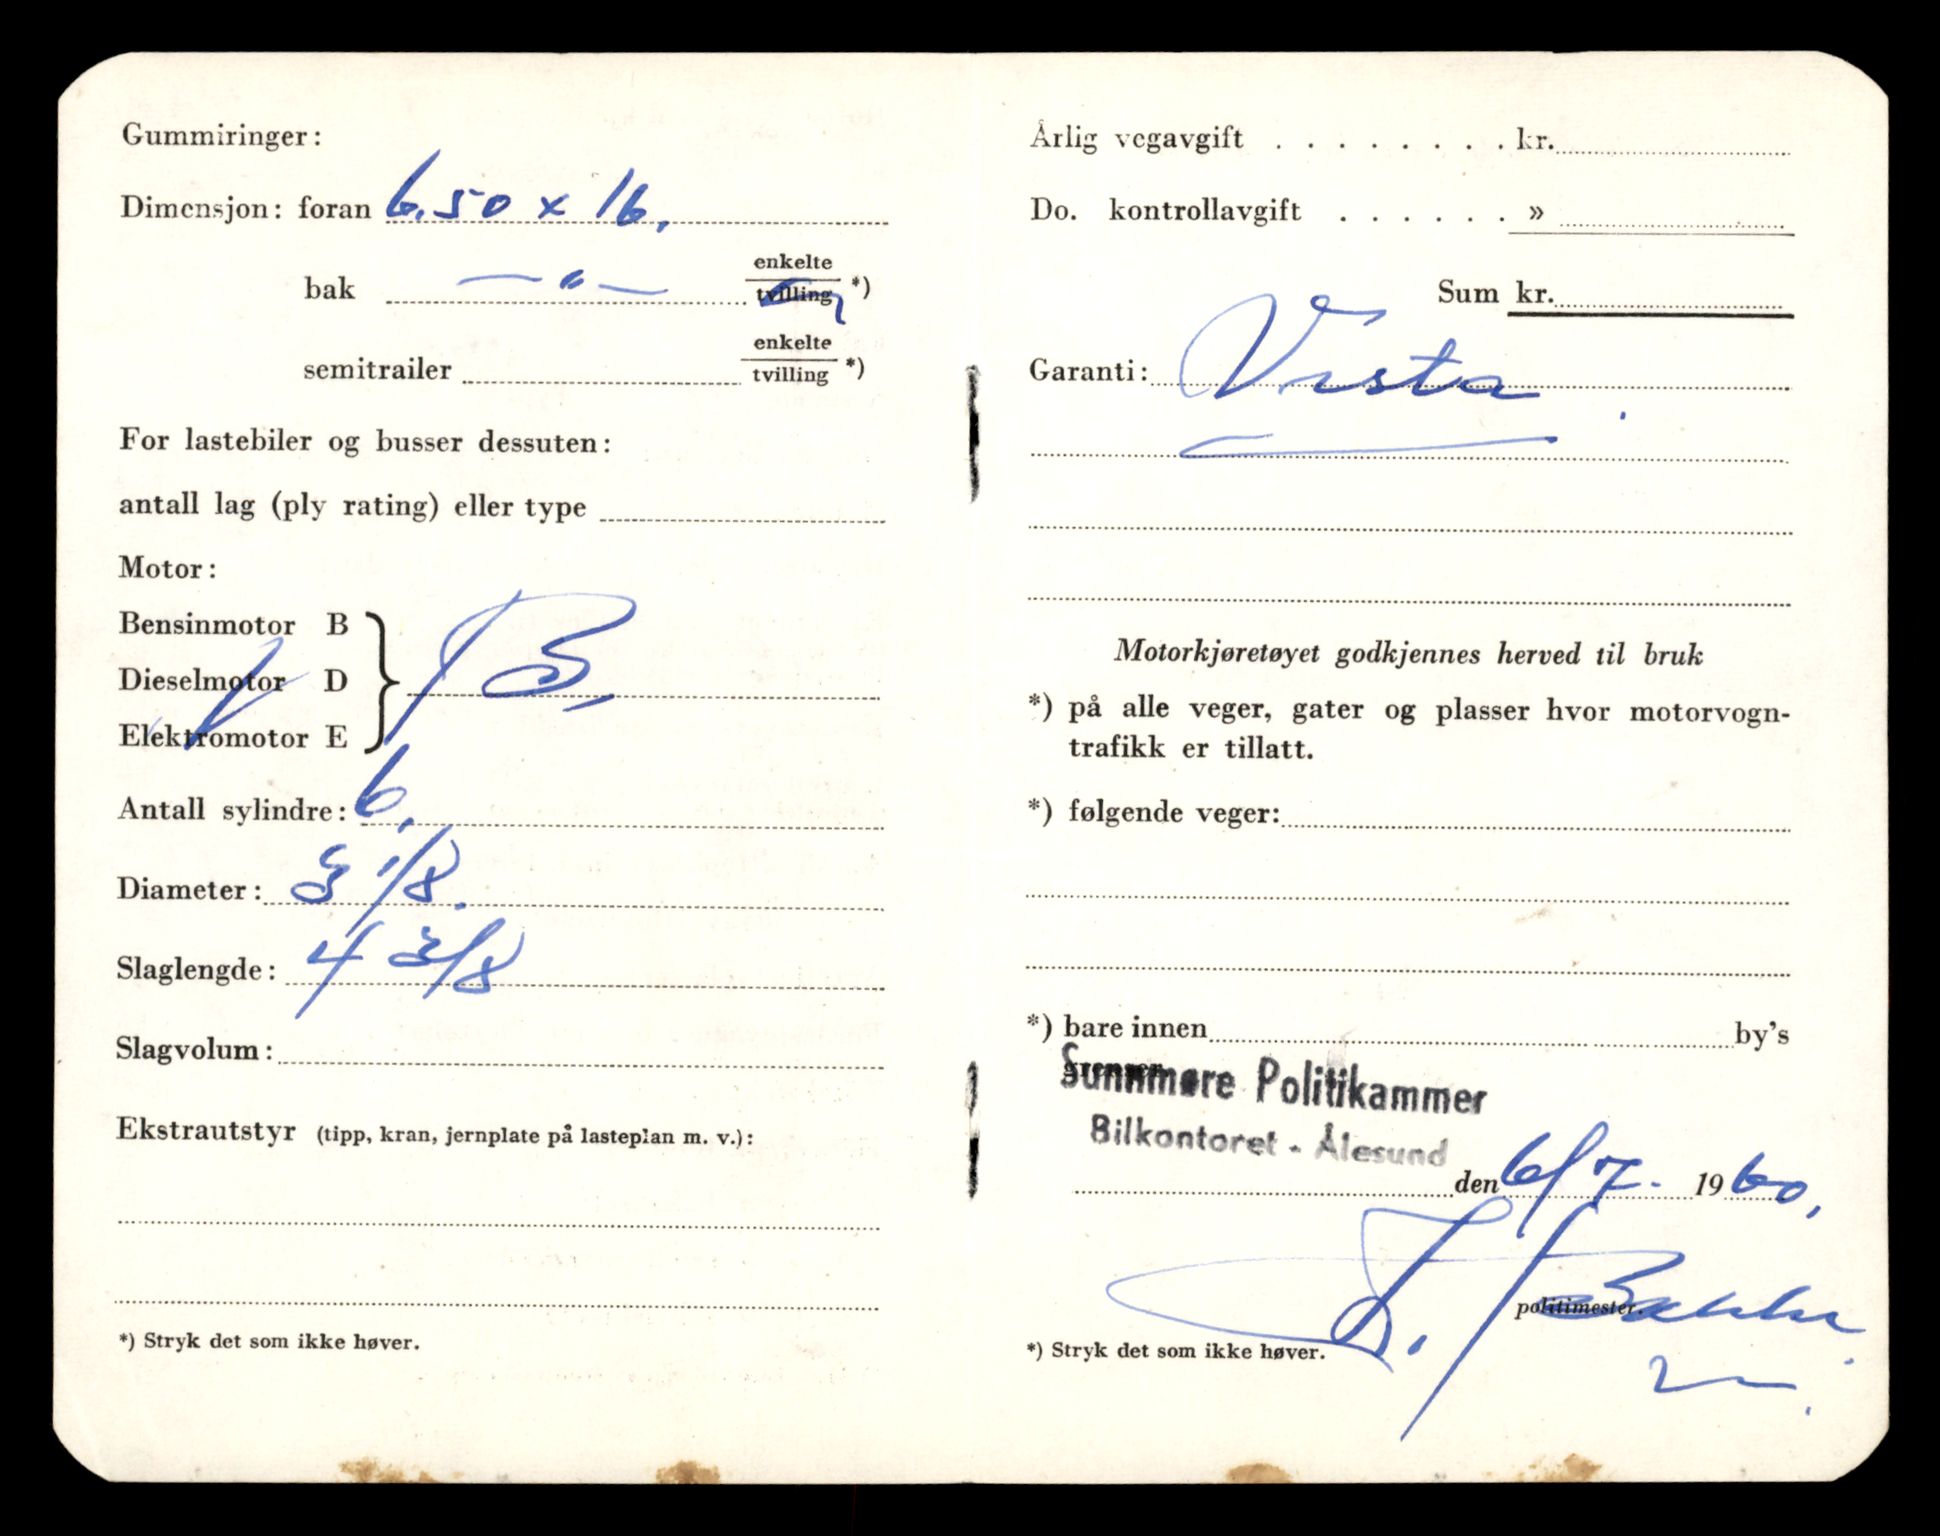 Gummiringer:
Dimensjon: foran 6.50 x 16.
bak — " — enkelte
tvilling *)
semitrailer enkelte
tvilling *)
For lastebiler og busser dessuten:
antall lag (ply rating) eller type
Motor:
Bensinmotor B
Dieselmotor D
Elektromotor E
B.
Antall sylindre: 6.
Diameter: 3 1/8.
Slaglengde: 4 3/8
Slagvolum:
Ekstrautstyr (tipp, kran, jernplate på lasteplan m. v.):
*) Stryk det som ikke høver.
Årlig vegavgift . . . . . . . . kr.
Do. kontrollavgift . . . . . . »
Sum kr.
Garanti: Vesta.
Motorkjøretøyet godkjennes herved til bruk
*) på alle veger, gater og plasser hvor motorvogn-
trafikk er tillatt.
*) følgende veger:
*) bare innen by's
grenser.
Sunnmøre Politikammer
Bilkontoret - Ålesund
den 6/7. 1960.
politimester.
*) Stryk det som ikke høver.